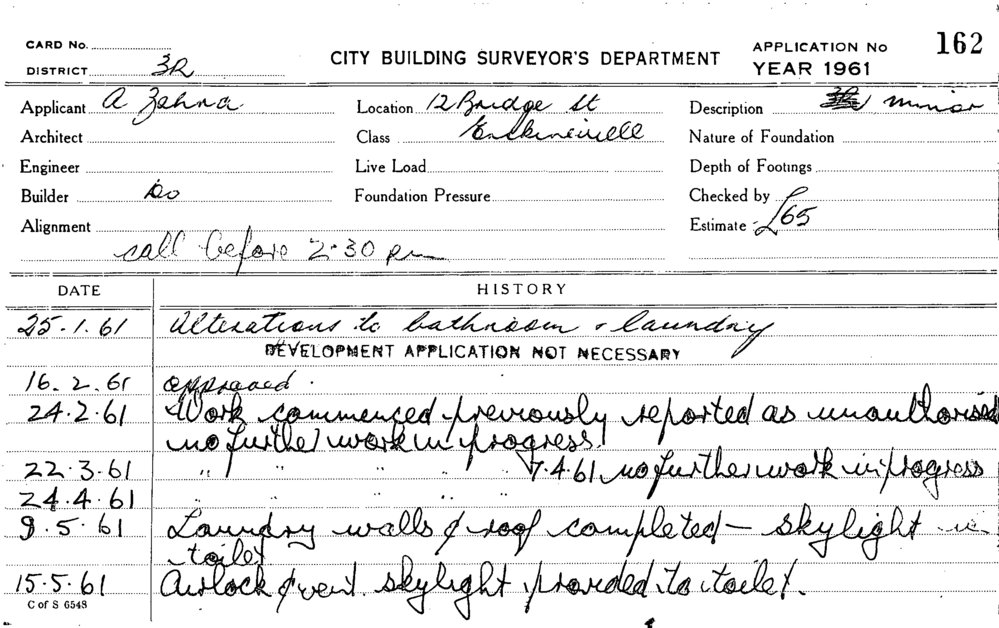 CARD No.
DISTRICT 3R
CITY BUILDING SURVEYOR'S DEPARTMENT
APPLICATION No 162
YEAR 1961
Applicant A Zahra Location 12 Bridge St Description minor
Architect Class Erskineville Nature of Foundation
Engineer Live Load Depth of Footings
Builder Do Foundation Pressure Checked by
Alignment Estimate £65
call before 2-30 pm
DATE HISTORY
25.1.61 Alterations to bathroom & laundry
DEVELOPMENT APPLICATION NOT NECESSARY
16.2.61 approved.
24.2.61 Work commenced previously reported as unauthorised
no further work in progress.
22.3.61 " " " " 7.4.61 no further work in progress
24.4.61 " " " "
9.5.61 Laundry walls & roof completed – skylight in
toilet
15.5.61 Airlock & vent skylight provided to toilet.
C of S 6548